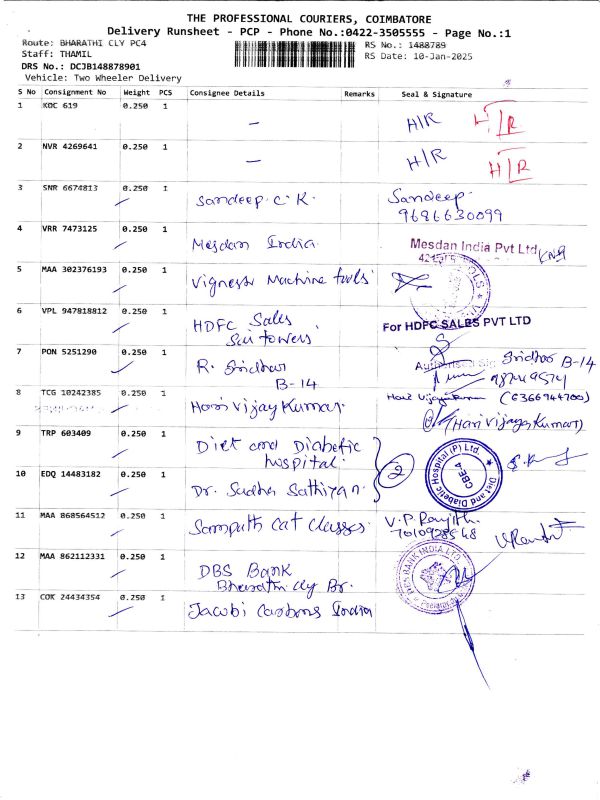 THE PROFESSIONAL COURIERS, COIMBATORE
Delivery Runsheet - PCP - Phone No.:0422-3505555 - Page No.:1
Route: BHARATHI CLY PC4 RS No.: 1488789
Staff: THAMIL RS Date: 10-Jan-2025
DRS No.: DCJB148878901
Vehicle: Two Wheeler Delivery
S No Consignment No Weight PCS Consignee Details Remarks Seal & Signature
1 KDC 619 0.250 1 — H/R H/R
2 NVR 4269641 0.250 1 — H/R H/R
3 SNR 6674813 0.250 1 Sandeep. C. K. Sandeep.
9686630099
4 VRR 7473125 0.250 1 Mesdan India. Mesdan India Pvt Ltd
5 MAA 302376193 0.250 1 Vignesh Machine tools
6 VPL 947818812 0.250 1 HDFC Sales For HDFC SALES PVT LTD
Sai towers
7 PON 5251290 0.250 1 R. Sridhar Sridhar B-14
B-14
8 TCG 10242385 0.250 1 Hari Vijay Kumar. Hari Vijay Kumar (6366944700)
(Hari Vijay Kumar)
9 TRP 603409 0.250 1 Diet and Diabetic
hospital. 2 Diet and Diabetic Hospital (P) Ltd. CBE-4
10 EDQ 14483182 0.250 1 Dr. Sadha Sathiyan.
11 MAA 868564512 0.250 1 Sampath Cat Classes. V.P. Ranjith
7010928568
12 MAA 862112331 0.250 1 DBS Bank DBS BANK INDIA LTD.
Bharathi cly Br.
13 COK 24434354 0.250 1 Jacobi Carbons India